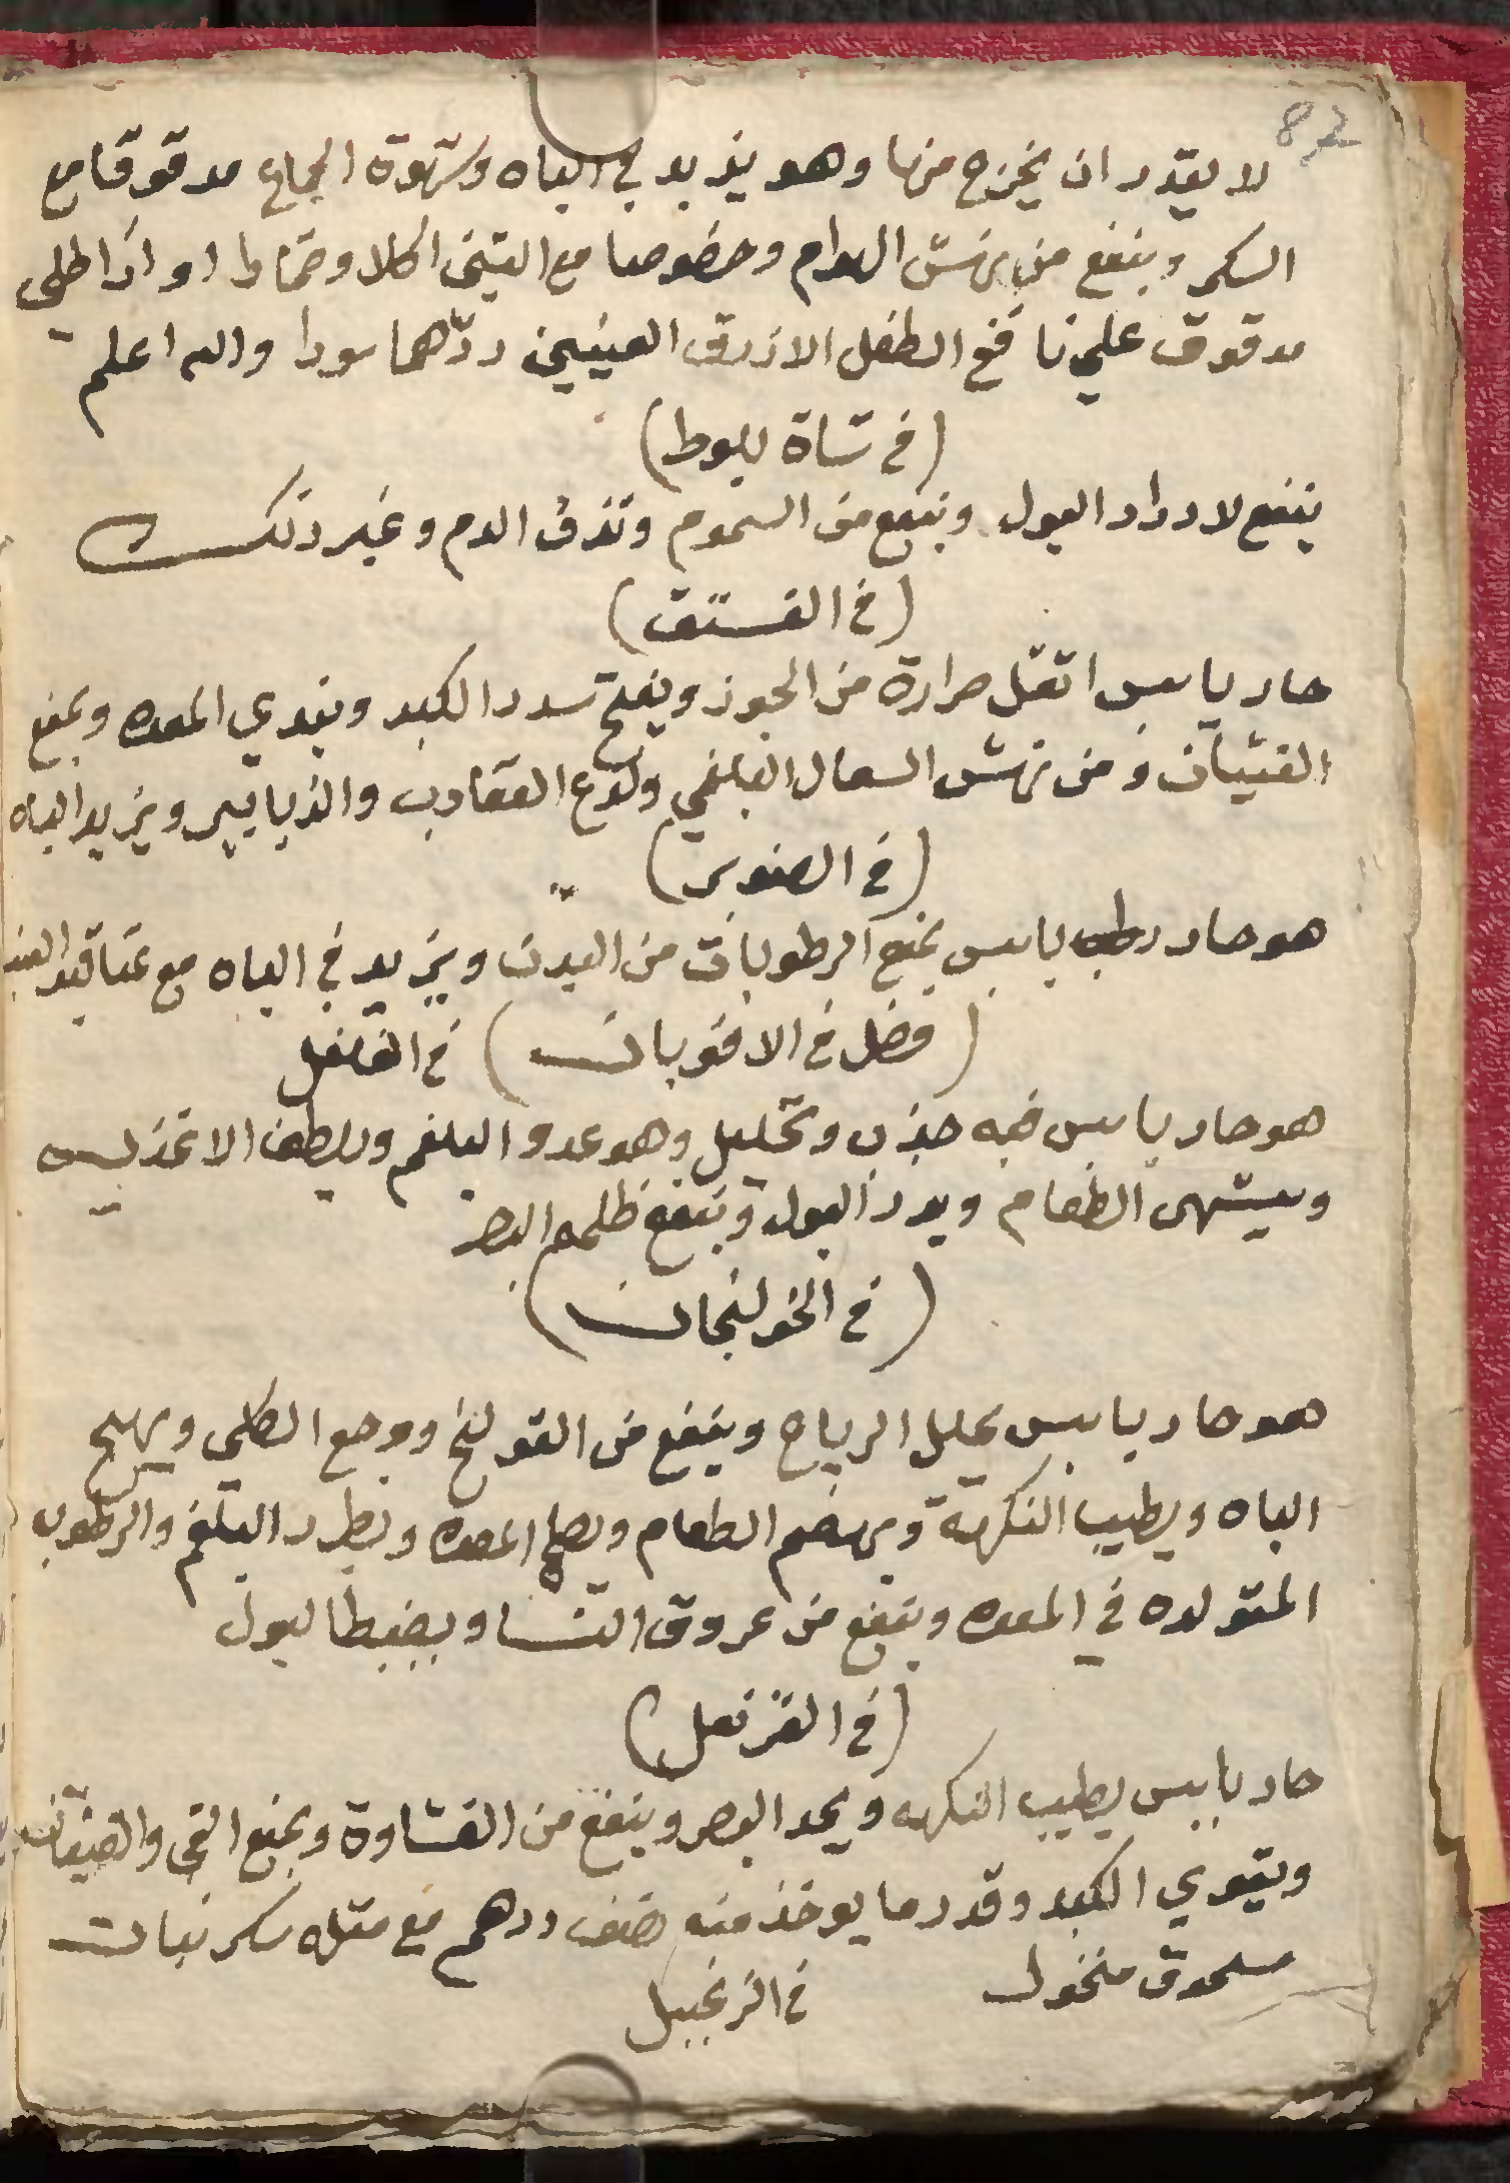 82
لا يقدر ان يخرج منها وهو يزيد في الباه وشهوة الجماع مدقوقا مع
السكر وينفع من نهش الهوام وخصوصا مع التين اكلا وضمادا او اذا طلي
مدقوق علي نافخ الطفل الازرق العينين ردّهما سودا والله اعلم
(في شاة بلوط)
ينفع لادرار البول وينفع من السموم ونزف الدم وغير ذلك
(في الفستق)
حار يابس اثقل حرارة من الجوز ويفتح سدد الكبد ويقوي المعده ويمنع
الغثيان ومن نهش السعال البلغمي ولدع العقارب والذبابير ويزيد الباه
(في الصنوبر)
هو حار رطب يابس يمنع الرطوبات من البدن ويزيد في الباه مع عناقيد العنب
(فصل في الافويات) في الفلفل
هو حار يابس فيه جذب وتحليل وهو عدو البلغم ويلطف الاغذيه
ويشهي الطعام ويدر البول وينفع ظلمة البصر
(في الخولنجان)
هو حار يابس يحلل الرياح وينفع من القولنج ووجع الكلي ويهيج
الباه ويطيب النكهة ويهضم الطعام ويصلح المعده ويطرد البلغم والرطوب
المتولده في المعده وينفع من عروق النسا ويضبط البول
(في القرنفل)
حار يابس يطيب النكهه ويحد البصر وينفع من الغشاوة ويمنع القي والغيثان
ويقوي الكبد وقدر ما يوخذ منه نصف درهم مع مثله سكر نبات
مسحوق منخول في الزنجبيل